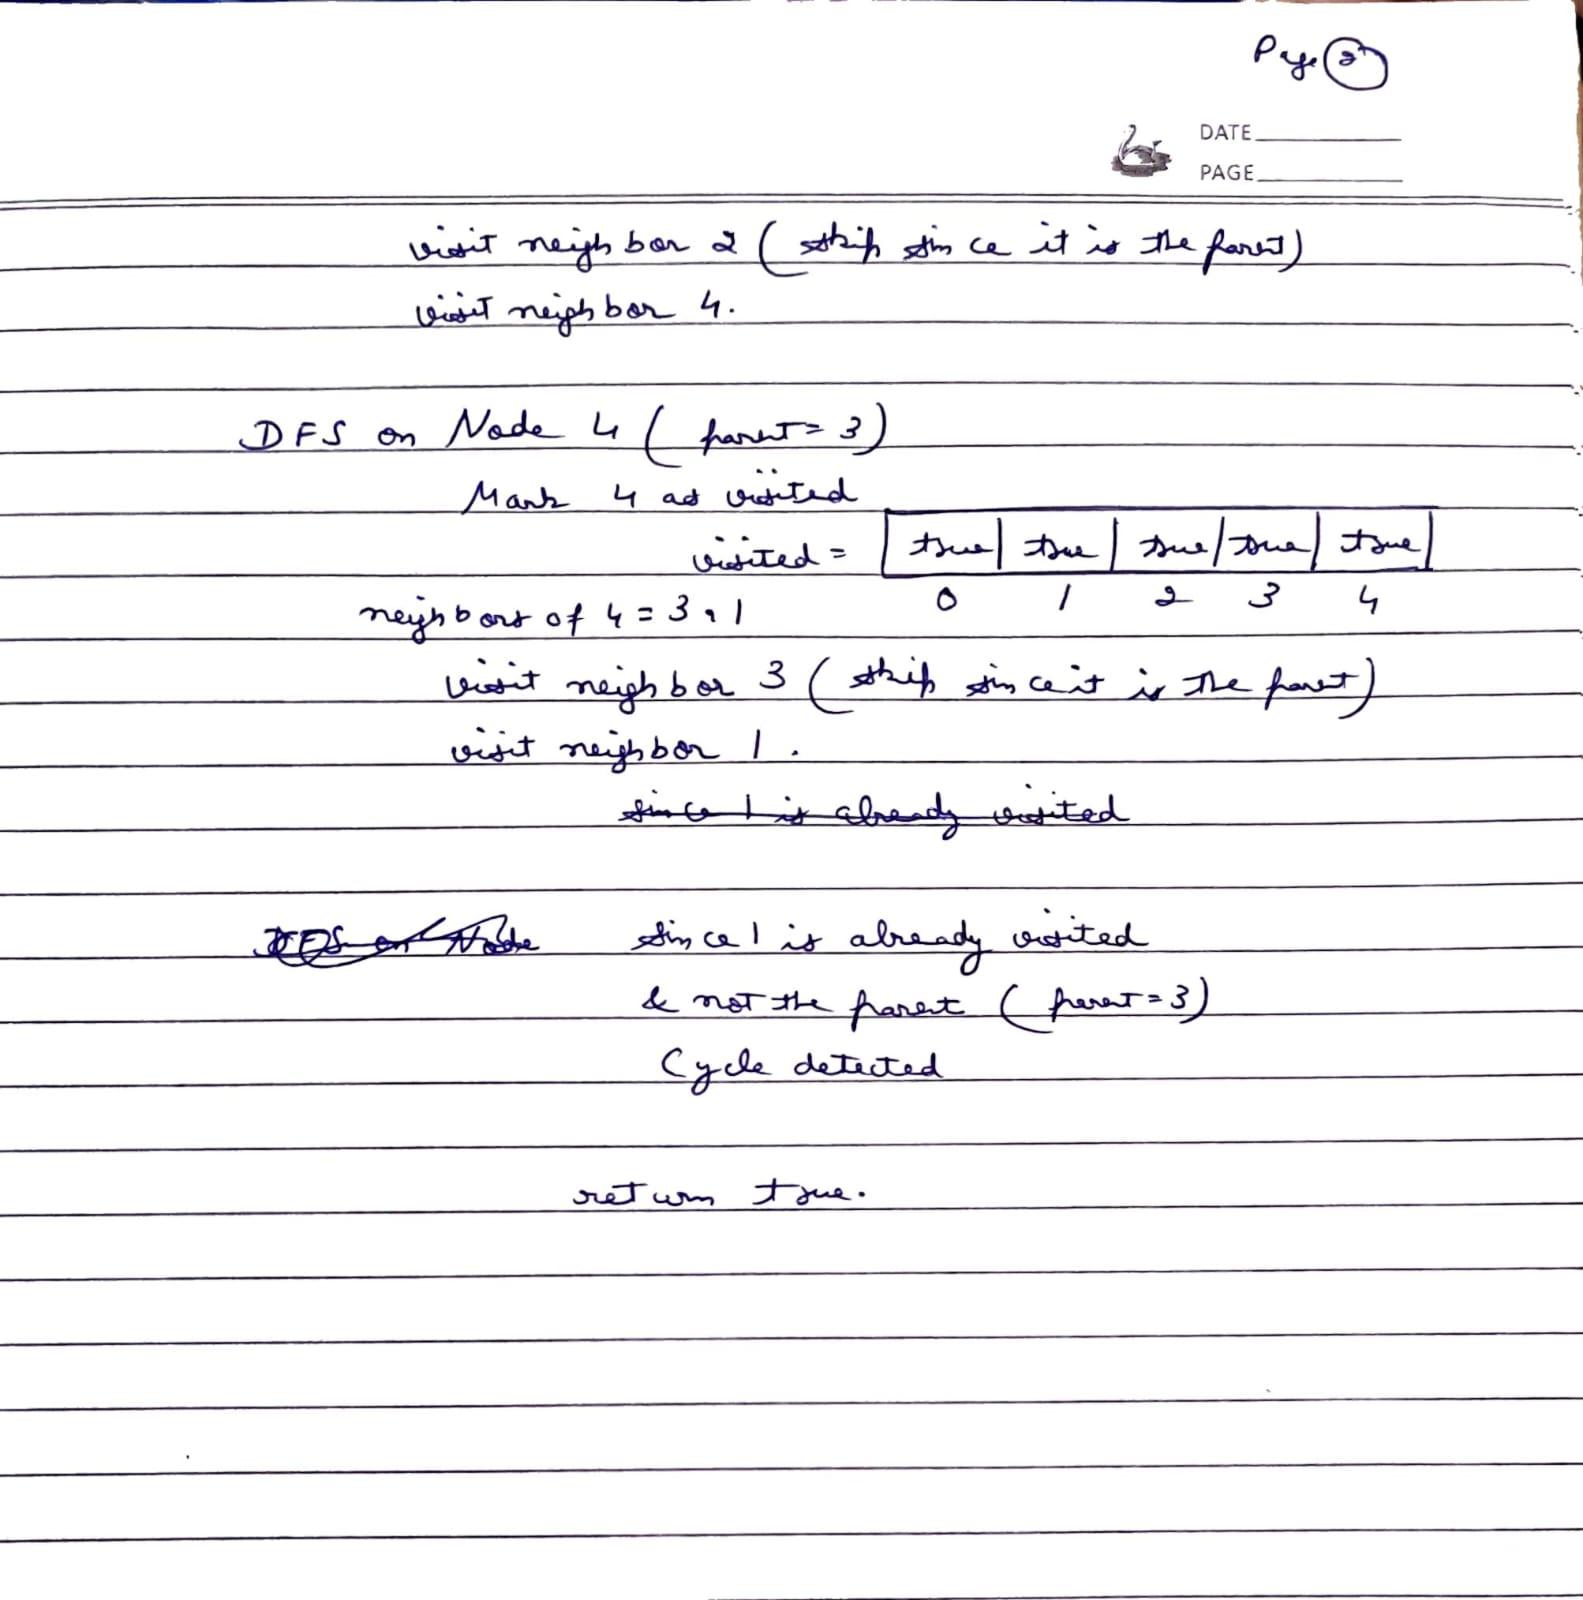 Page 2
DATE
PAGE
visit neighbor 2 ( skip since it is the parent)
visit neighbor 4.
DFS on Node 4 ( parent = 3)
Mark 4 as visited
visited = | true | true | true | true | true |
0 1 2 3 4
neighbors of 4 = 3, 1
visit neighbor 3 ( skip since it is the parent)
visit neighbor 1.
since 1 is already visited
DFS on Node since 1 is already visited
& not the parent ( parent = 3)
Cycle detected
return true.